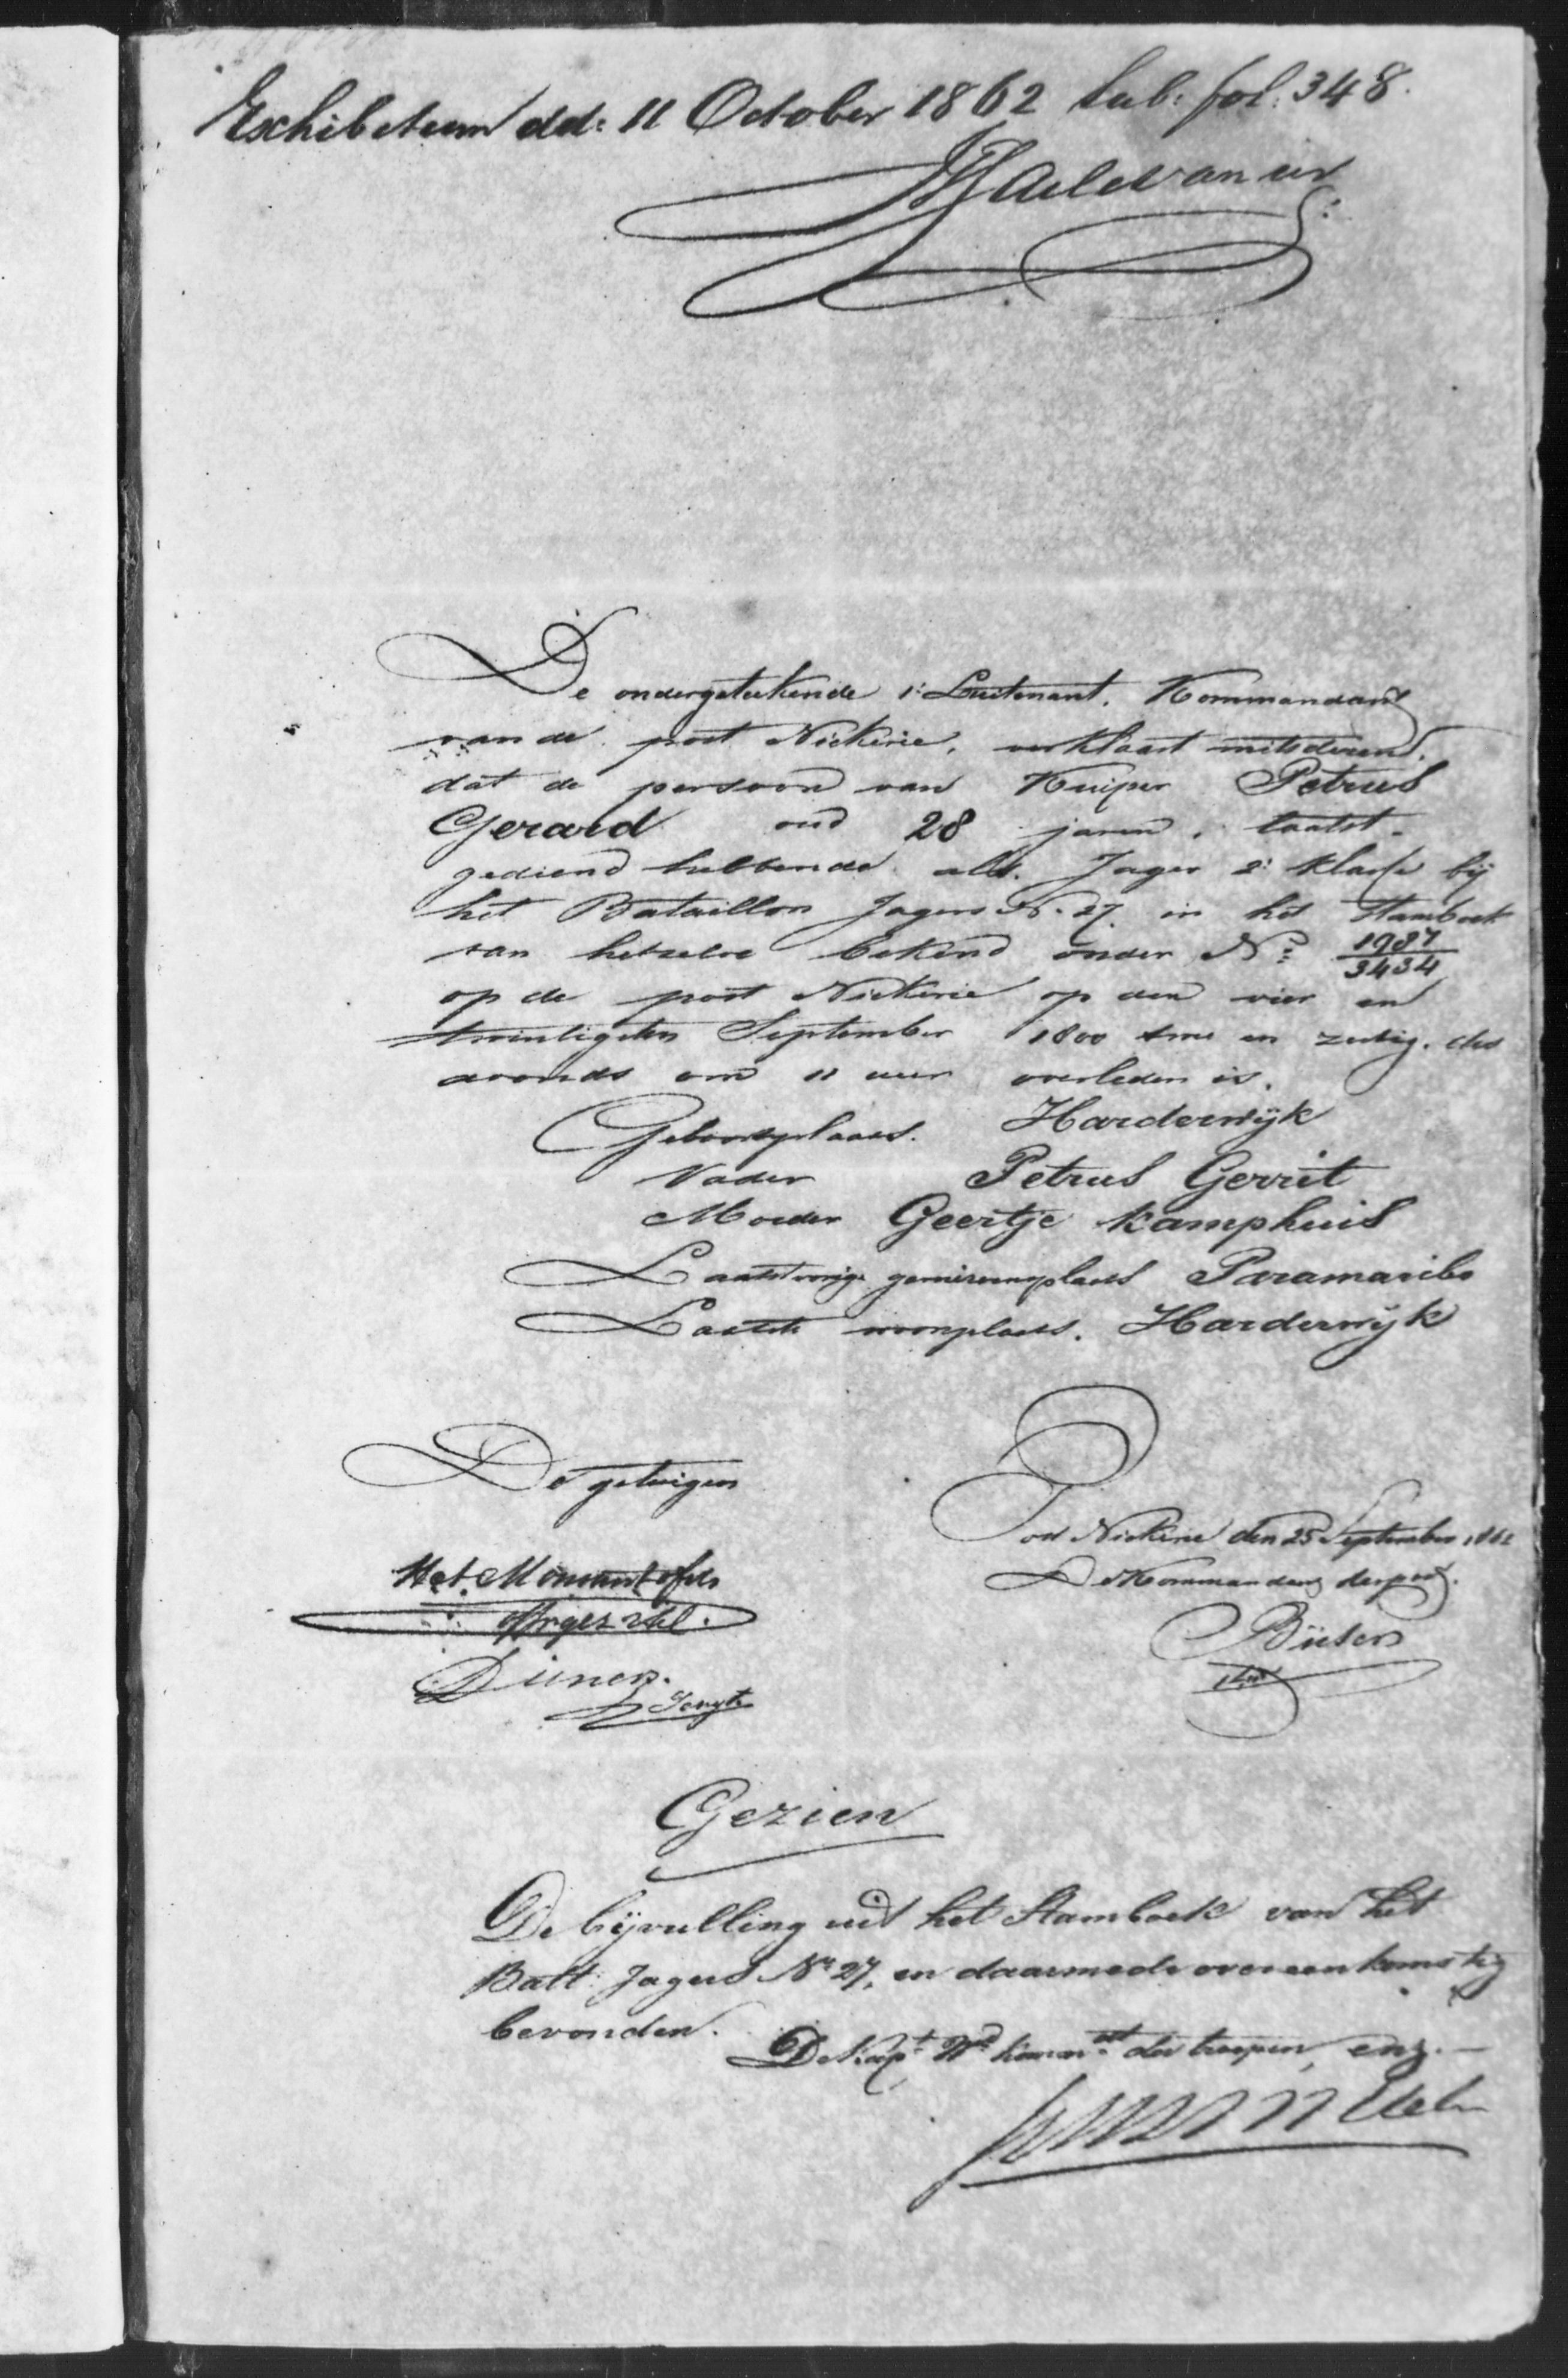 Exhibitum dd: 11 October 1862 sub: fol: 348.
De ondergeteekende 1e Luitenant, Kommandant
van de post Nickerie, verklaart mits dezen,
dat de persoon van Kuiper Petrus
Gerard oud 28 jaren, laatst
gediend hebbende als Jager 2e klasse bij
het Bataillon Jagers No. 27 in het Stamboek
van hetzelve bekend onder No 1987/3434
op de post Nickerie op den vier en
twintigsten September 1800 twee en zestig, des
avonds om 11 uur overleden is.
Geboorteplaats. Harderwijk
Vader Petrus Gerrit
Moeder Geertje Kamphuis
Laatst vorige garnizoensplaats Paramaribo
Laatste woonplaats. Harderwijk
De getuigen
Post Nickerie den 25 September 1862
De Kommandant der post.
Gezien
De bijvulling uit het Stamboek van het
Batt: Jagers No 27, en daarmede overeenkomstig
bevonden.
De Kapt Wd komm: der troepen, enz.